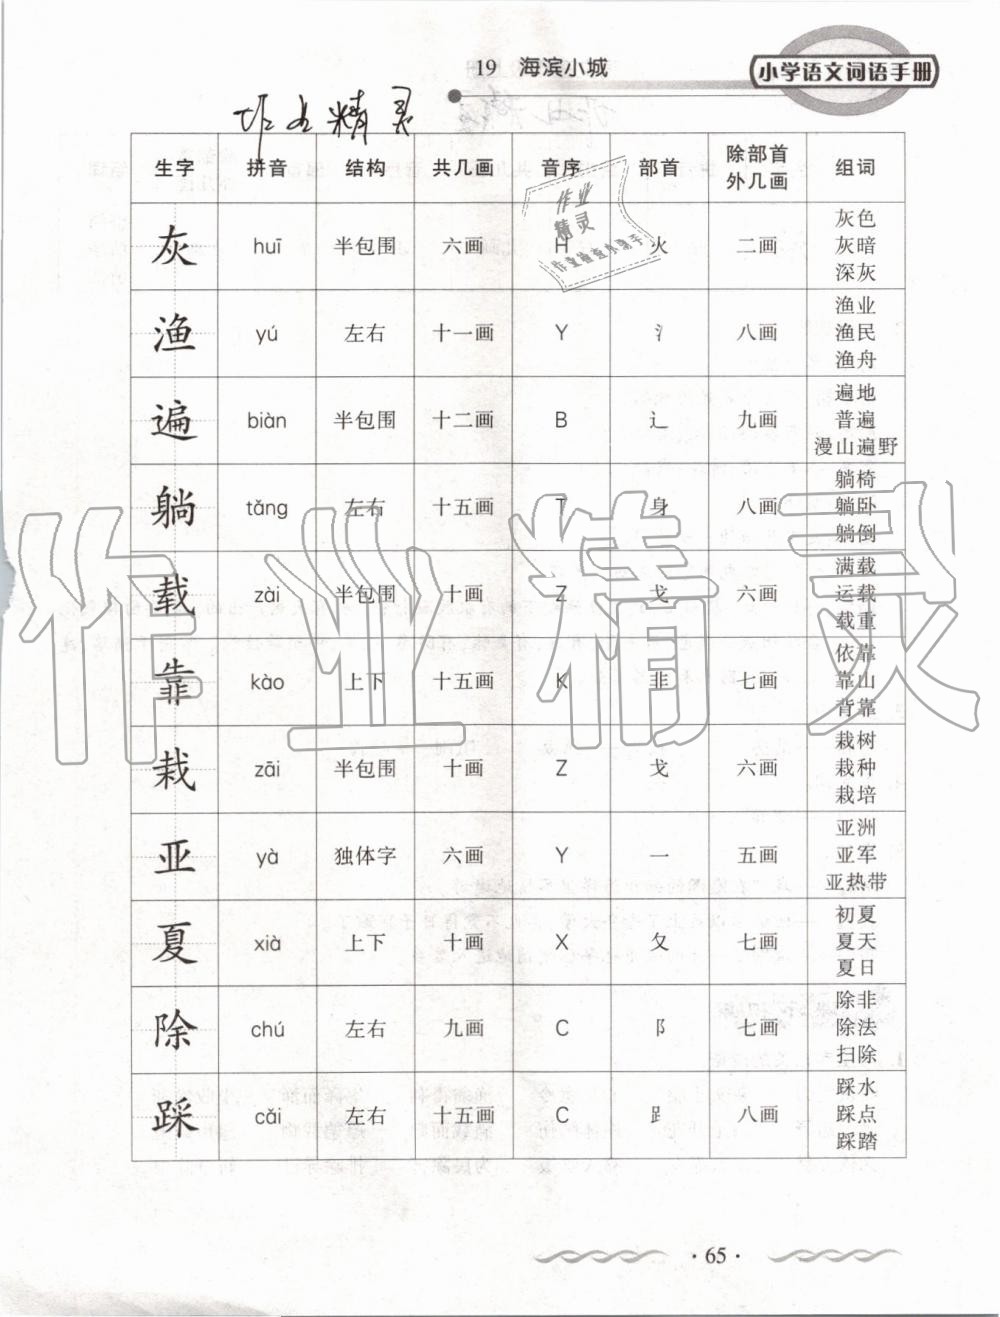 19 海滨小城
小学语文词语手册
作业精灵
生字 拼音 结构 共几画 音序 部首 除部首外几画 组词
灰 huī 半包围 六画 H 火 二画 灰色 灰暗 深灰
渔 yú 左右 十一画 Y 氵 八画 渔业 渔民 渔舟
遍 biàn 半包围 十二画 B 辶 九画 遍地 普遍 漫山遍野
躺 tǎng 左右 十五画 T 身 八画 躺椅 躺卧 躺倒
载 zài 半包围 十画 Z 戈 六画 满载 运载 载重
靠 kào 上下 十五画 K 非 七画 依靠 靠山 背靠
栽 zāi 半包围 十画 Z 戈 六画 栽树 栽种 栽培
亚 yà 独体字 六画 Y 一 五画 亚洲 亚军 亚热带
夏 xià 上下 十画 X 夂 七画 初夏 夏天 夏日
除 chú 左右 九画 C 阝 七画 除非 除法 扫除
踩 cǎi 左右 十五画 C 𧾷 八画 踩水 踩点 踩踏
作业
精灵
作业检查小助手
作业精灵
·65·